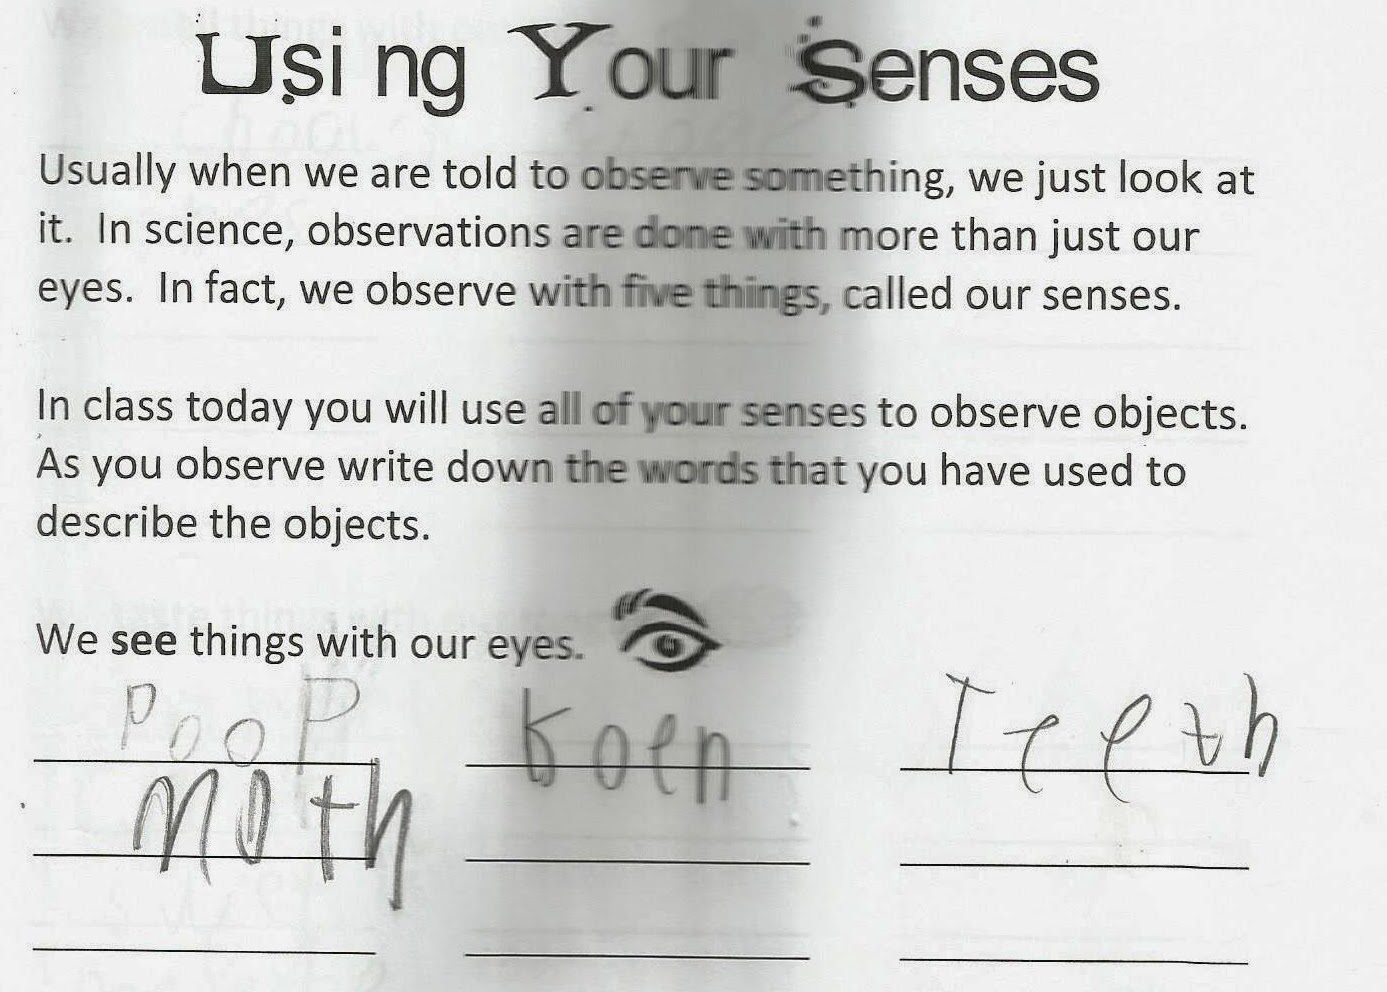 Using Your Senses
Usually when we are told to observe something, we just look at
it. In science, observations are done with more than just our
eyes. In fact, we observe with five things, called our senses.
In class today you will use all of your senses to observe objects.
As you observe write down the words that you have used to
describe the objects.
We see things with our eyes.
PooP Koen Teeth
moth